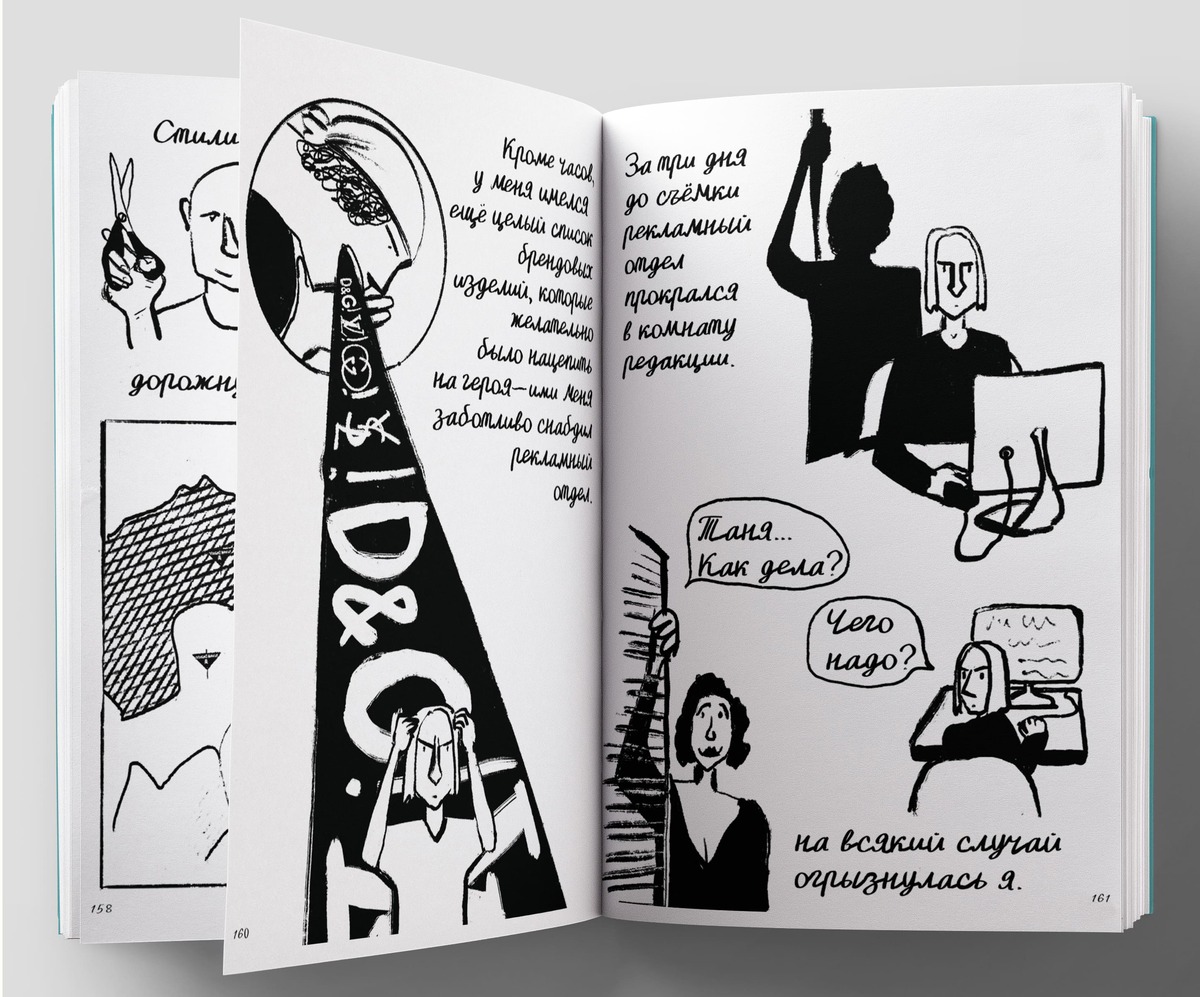 Стили
дорожну
158
Кроме часов,
у меня имелся
ещё целый список
брендовых
изделий, которые
желательно
было нацепить
на героя—ими меня
заботливо снабдил
рекламный
отдел.
D&G
D&G
160
За три дня
до съёмки
рекламный
отдел
прокрался
в комнату
редакции.
Таня...
Как дела?
Чего
надо?
на всякий случай
огрызнулась я.
161